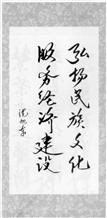 弘扬民族文化
服务经济建设